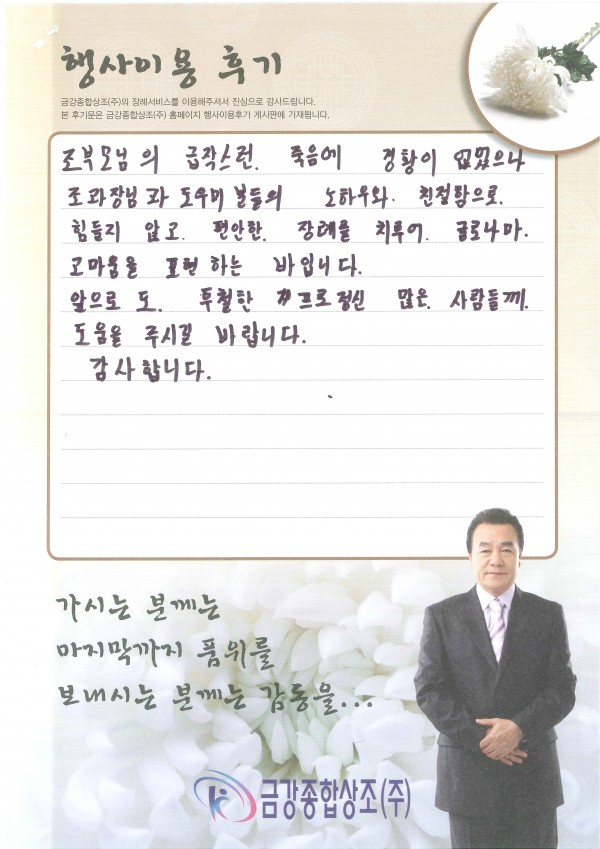 행사이용 후기
금강종합상조(주)의 장례서비스를 이용해주셔서 진심으로 감사드립니다.
본 후기문은 금강종합상조(주) 홈페이지 행사이용후기 게시판에 기재됩니다.
조부모님의 급작스런. 죽음에 경황이 없었으나
조과장님과 도우미분들의 노하우와. 친절함으로.
힘들지 않고. 편안한. 장례를 치루어. 글로나마.
고마움을 표현하는 바입니다.
앞으로도. 투철한 프로정신 많은. 사람들께.
도움을 주시길 바랍니다.
감사합니다.
가시는 분께는
마지막까지 품위를
보내시는 분께는 감동을...
금강종합상조(주)